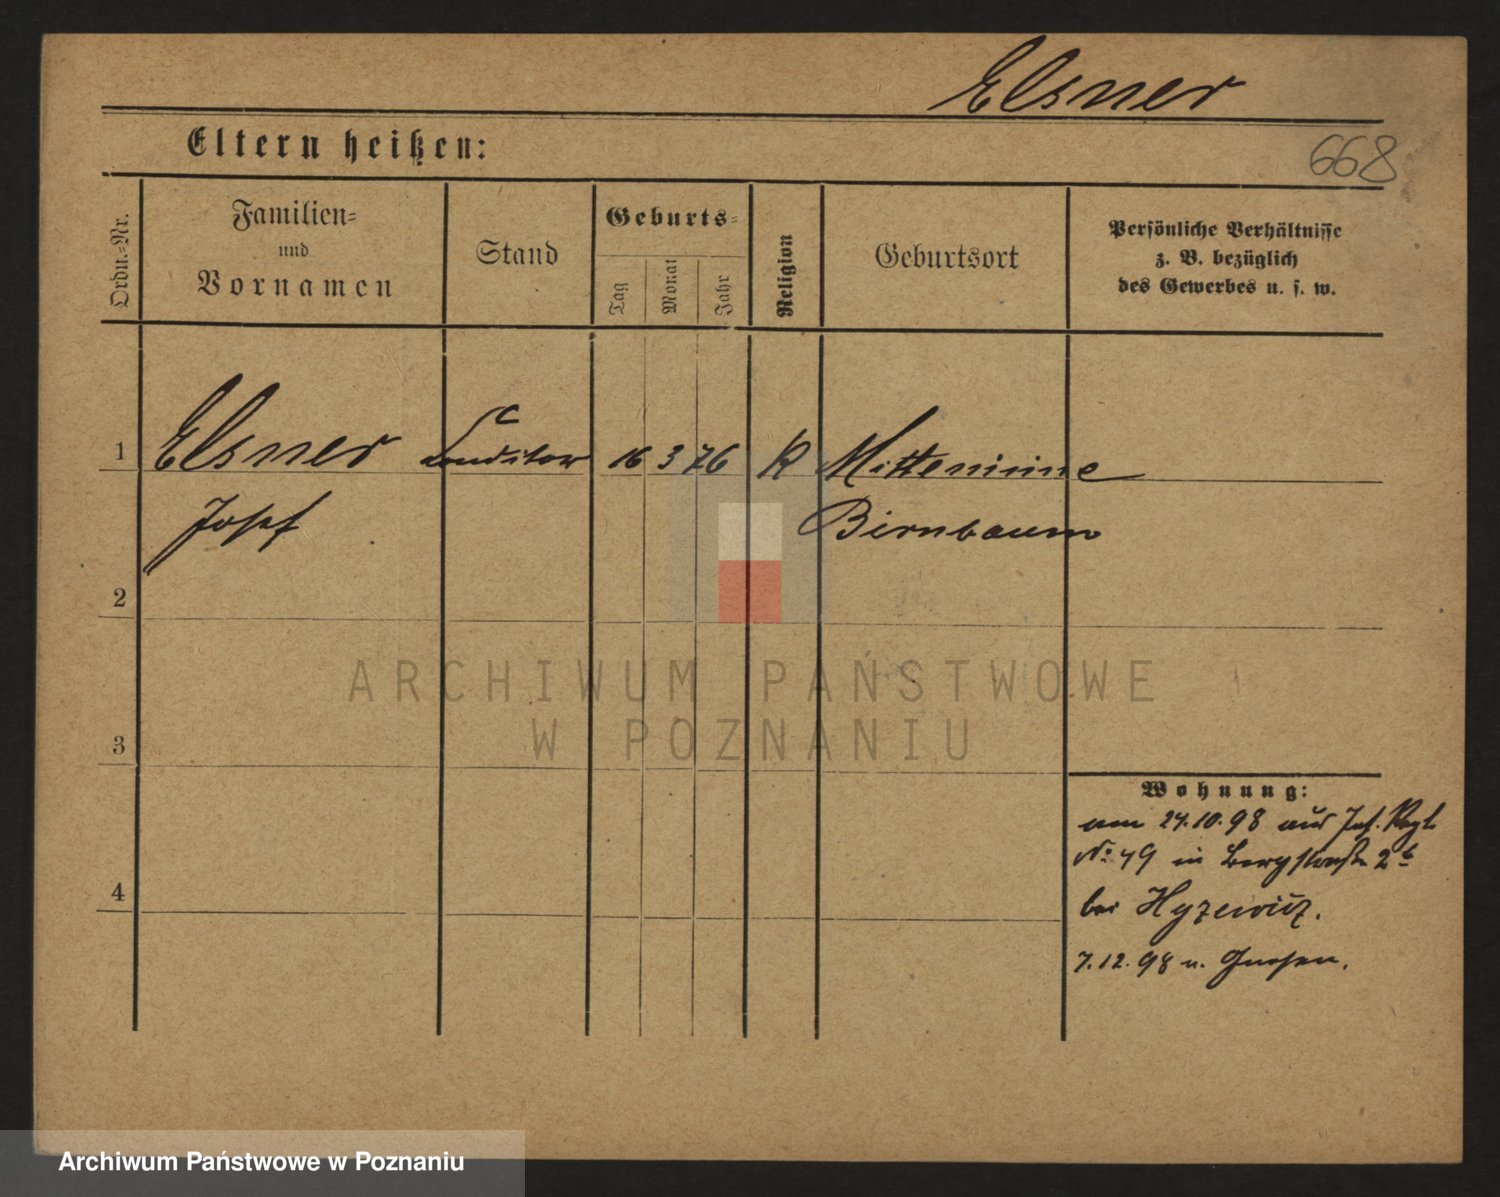 Elsner
668
Eltern heißen:
Ordn.-Nr.
Familien-
und
Vornamen
Stand
Geburts-
Tag
Monat
Jahr
Religion
Geburtsort
Persönliche Verhältnisse
z. B. bezüglich
des Gewerbes u. s. w.
1 Elsner Conditor 16 3 76 K
Josef Birnbaum
2
ARCHIWUM PAŃSTWOWE
W POZNANIU
3
Wohnung:
am 24.10.98 aus Inf. Regt.
No. 49 in Bergstraße 2b
bei
7.12.98 n. Gnesen.
4
Archiwum Państwowe w Poznaniu